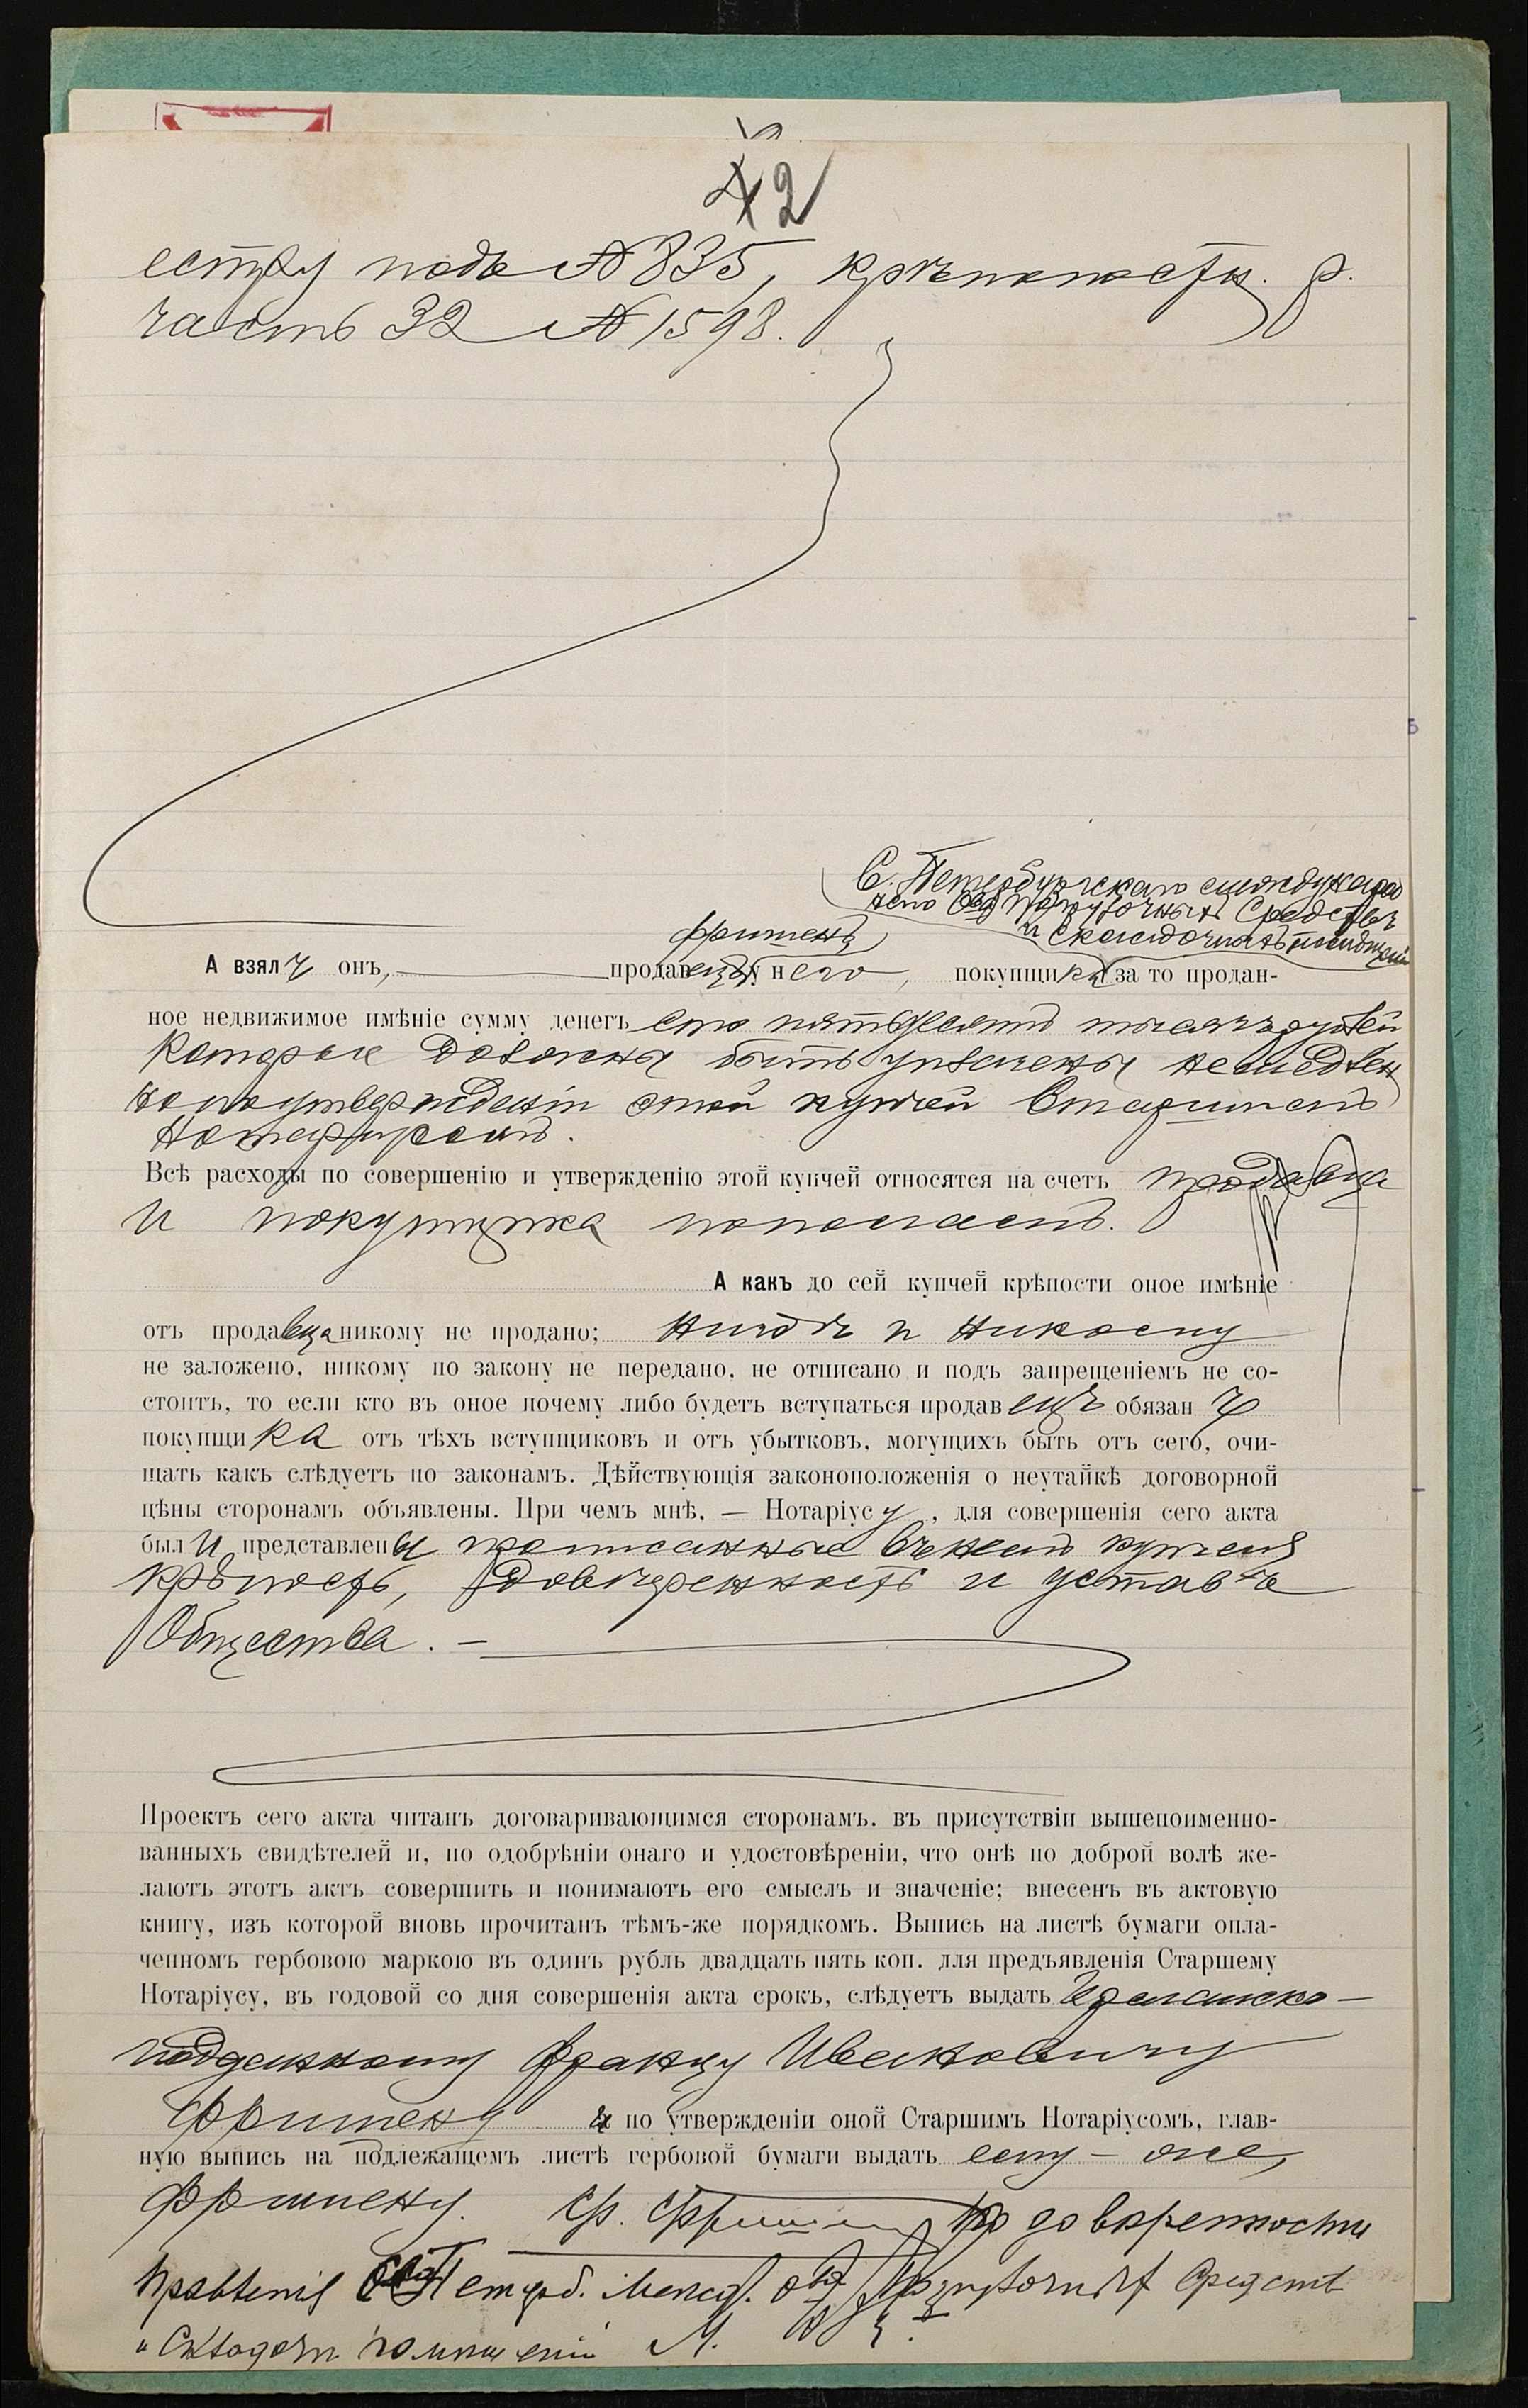 42
естру подъ № 835, крѣпостн. р.
часть 32 № 1598.
С. Петербургскаго международ
наго Общ погрузочныхъ Средствъ
и складочныхъ помѣщеній
Фришенъ
А взялъ онъ, продавецъ у него, покупщика за то продан-
ное недвижимое имѣніе сумму денегъ сто пятьдесятъ тысячъ рублей
Которые должны быть уплачены немедлен
но по утвержденіи этой купчей Старшимъ
Нотаріусомъ.
Всѣ расходы по совершенію и утвержденію этой купчей относятся на счетъ продавца
и покупщика пополамъ.
А какъ до сей купчей крѣпости оное имѣніе
отъ продавца никому не продано; нигдѣ и никому
не заложено, никому по закону не передано, не отписано и подъ запрещеніемъ не со-
стоитъ, то если кто въ оное почему либо будетъ вступаться продавецъ обязанъ
покупщика отъ тѣхъ вступщиковъ и отъ убытковъ, могущихъ быть отъ сего, очи-
щать какъ слѣдуетъ по законамъ. Дѣйствующія законоположенія о неутайкѣ договорной
цѣны сторонамъ объявлены. При чемъ мнѣ, — Нотаріусу, для совершенія сего акта
были представлены прописанные въ немъ купчая
крѣпость, довѣренность и уставъ
Общества. —
Проектъ сего акта читанъ договаривающимся сторонамъ. въ присутствіи вышепоименно-
ванныхъ свидѣтелей и, по одобрѣніи онаго и удостовѣреніи, что онѣ по доброй волѣ же-
лаютъ этотъ актъ совершить и понимаютъ его смыслъ и значеніе; внесенъ въ актовую
книгу, изъ которой вновь прочитанъ тѣмъ-же порядкомъ. Выпись на листѣ бумаги опла-
ченномъ гербовою маркою въ одинъ рубль двадцать пять коп. для предъявленія Старшему
Нотаріусу, въ годовой со дня совершенія акта срокъ, слѣдуетъ выдать
подданному Францу Ивановичу
Фришену и по утвержденіи оной Старшимъ Нотаріусомъ, глав-
ную выпись на подлежащемъ листѣ гербовой бумаги выдать ему-же,
Фришену. Ф. Фришенъ По довѣренности
Правленія С Петерб. Межд. Общ Погрузочныхъ Средствъ
и Складочн помѣщеній М.